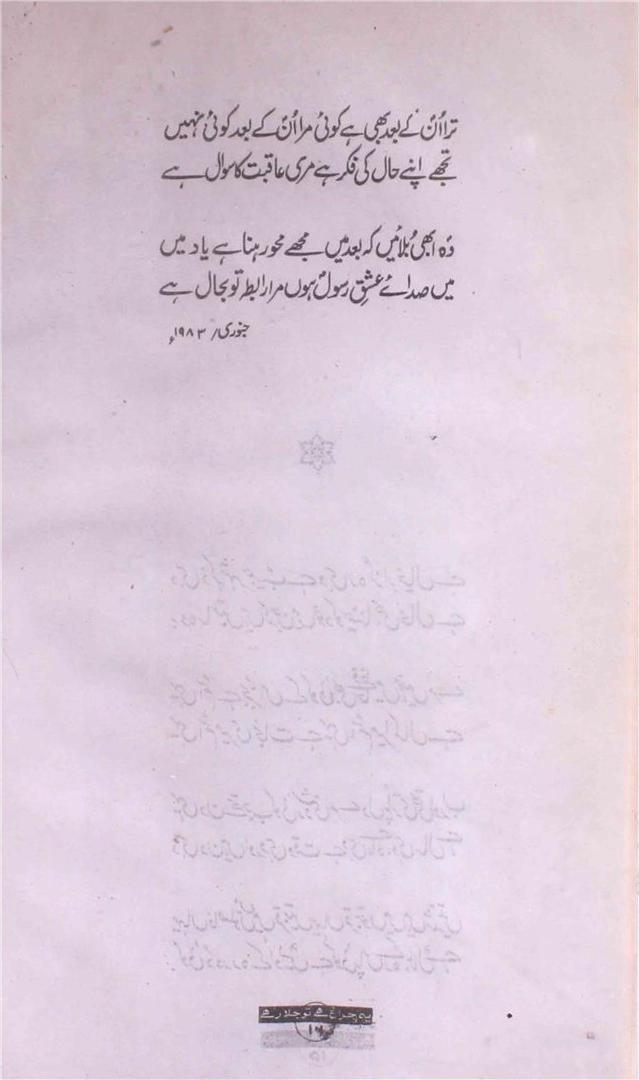 ترا اُنؐ کے بعد بھی ہے کوئی مرا اُنؐ کے بعد کوئی نہیں
تجھے اپنے حال کی فکر ہے مری عاقبت کا سوال ہے
وُہ ابھی بُلائیں کہ بعد میں مجھے محو رہنا ہے یاد میں
میں صدائے عشقِ رسولؐ ہوں مرا رابطہ تو بحال ہے
جنوری/ ۱۹۸۳ء
یہ چراغ ہے تو جلا رہے
۱۶